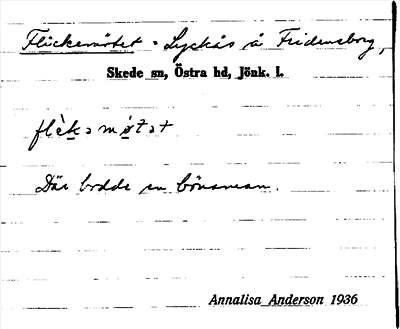 Flickemötet = Lyckås å Fridensborg,
Skede sn, Östra hd, Jönk. l.
flèkamøtət
Där bodde en böneman.
Annalisa Anderson 1936